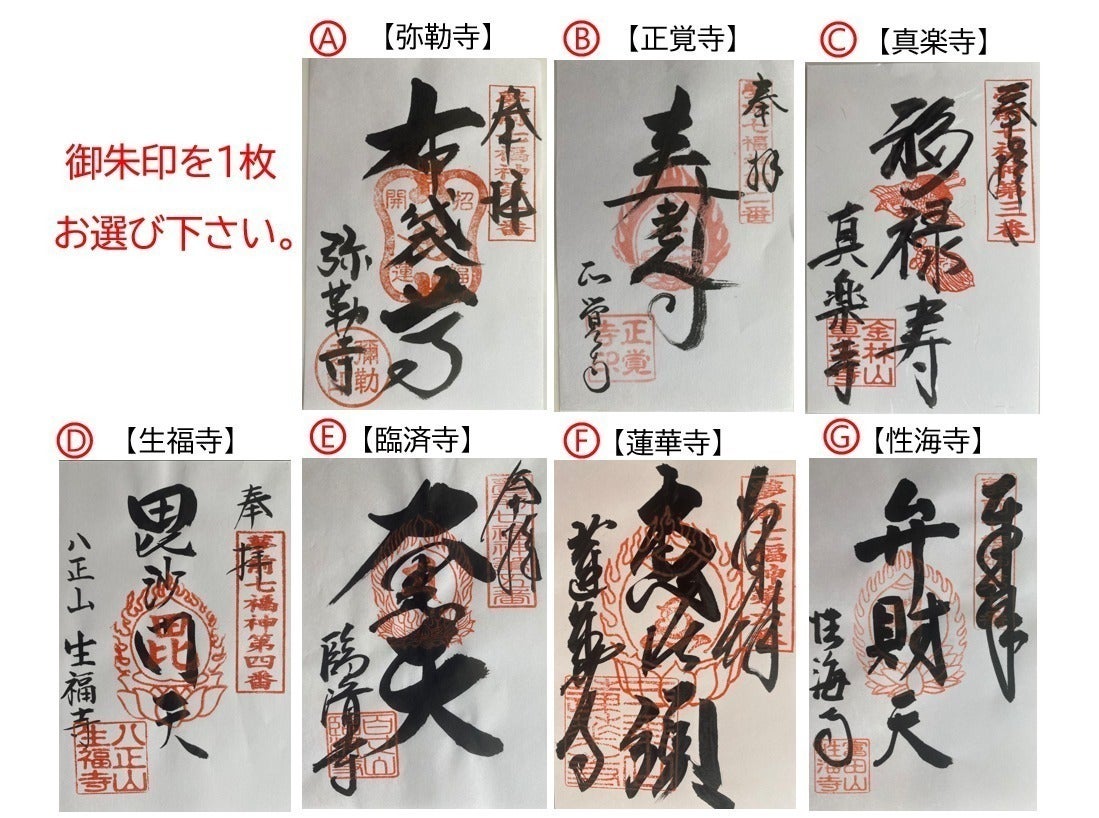 御朱印を1枚
お選び下さい。
A 【弥勒寺】
奉拝
布袋尊
弥勒寺
開
招
運
福
彌勒
B 【正覚寺】
奉拝
寿老人
正覚寺
正覚
寺印
C 【真楽寺】
奉拝
福禄寿
真楽寺
金林山
D 【生福寺】
奉拝
七福神第四番
毘沙門天
毘
八正山 生福寺
八正山
生福寺
E 【臨済寺】
奉拝
大黒天
臨済寺
F 【蓮華寺】
奉拝
恵比須
蓮華寺
G 【性海寺】
奉拝
弁財天
性海寺
富田山
性海寺